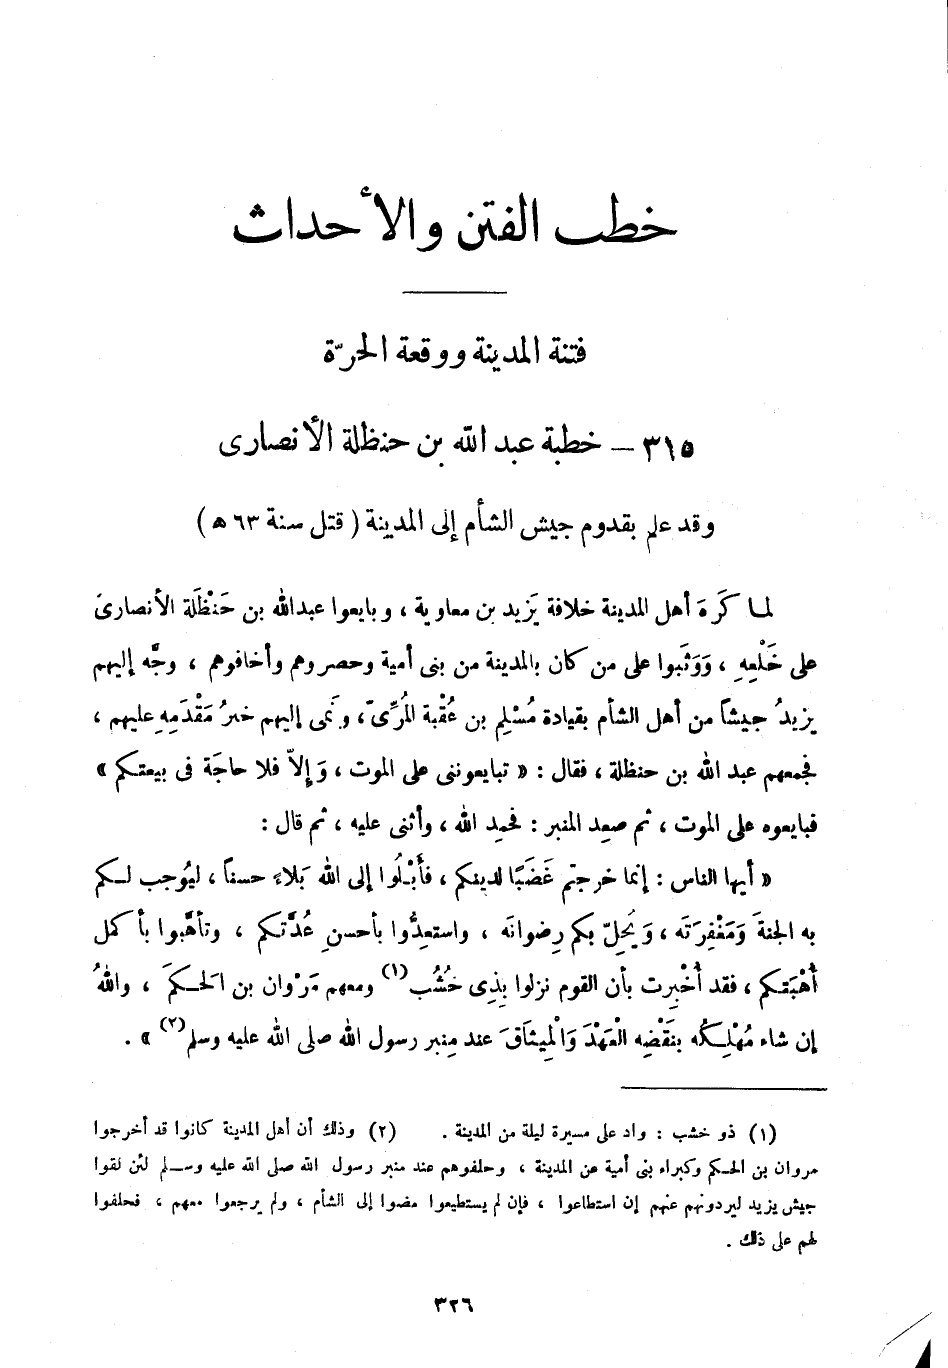 خطب الفتن والأحداث
فتنة المدينة ووقعة الحرّة
٣١٥ – خطبة عبد الله بن حنظلة الأنصارى
وقد علم بقدوم جيش الشأم إلى المدينة ( قتل سنة ٦٣ ه )
لما كَرِهَ أهل المدينة خلافة يَزيد بن معاوية ، وبايعوا عبدالله بن حَنْظَلة الأنصارىَ
على خَلْعِهِ ، وَوَثَبوا على من كان بالمدينة من بنى أمية وحصروهم وأخافوهم ، وجَّه إليهم
يزيدُ جيشاً من أهل الشأم بقيادة مُسْلِم بن عُقْبة المُرِّىّ ، ونَمى إليهم خبرُ مَقْدَمِهِ عليهم ،
فجمعهم عبد الله بن حنظلة ، فقال : « تبايعوننى على الموت ، وَإِلاّ فلا حاجَة فى بيعتكم »
فبايعوه على الموت ، ثم صعِد المنبر : فحمِد الله ، وأثنى عليه ، ثم قال :
« أيها الناس : إنما خرجتم غَضَبًا لدينكم ، فأَبْلُوا إلى الله بَلاءً حسناً ، ليُوجب لكم
به الجنةَ وَمَغْفِرَتَه ، وَيُحِلّ بكم رِضوانَه ، واستعِدُّوا بأحسنِ عُدَّتكم ، وتأهَّبوا بأكمل
أُهْبَتكم ، فقد أُخْبِرت بأن القوم نزلوا بِذِى خُشُب (١) ومعهم مَرْوان بن الحكَم ، واللهُ
إن شاء مُهْلِكُه بنَقْضِه الْعَهْدَ وَالْمِيثَاقَ عند مِنبر رسول الله صلى الله عليه وسلم (٢) » .
(١) ذو خشب : واد على مسيرة ليلة من المدينة . (٢) وذلك أن أهل المدينة كانوا قد أخرجوا
مروان بن الحكم وكبراء بنى أمية عن المدينة ، وحلفوهم عند منبر رسول الله صلى الله عليه وسلم لئن لقوا
جيش يزيد ليردونهم عنهم إن استطاعوا ، فإن لم يستطيعوا مضوا إلى الشأم ، ولم يرجعوا معهم ، فحلفوا
لهم على ذلك .
٣٢٦